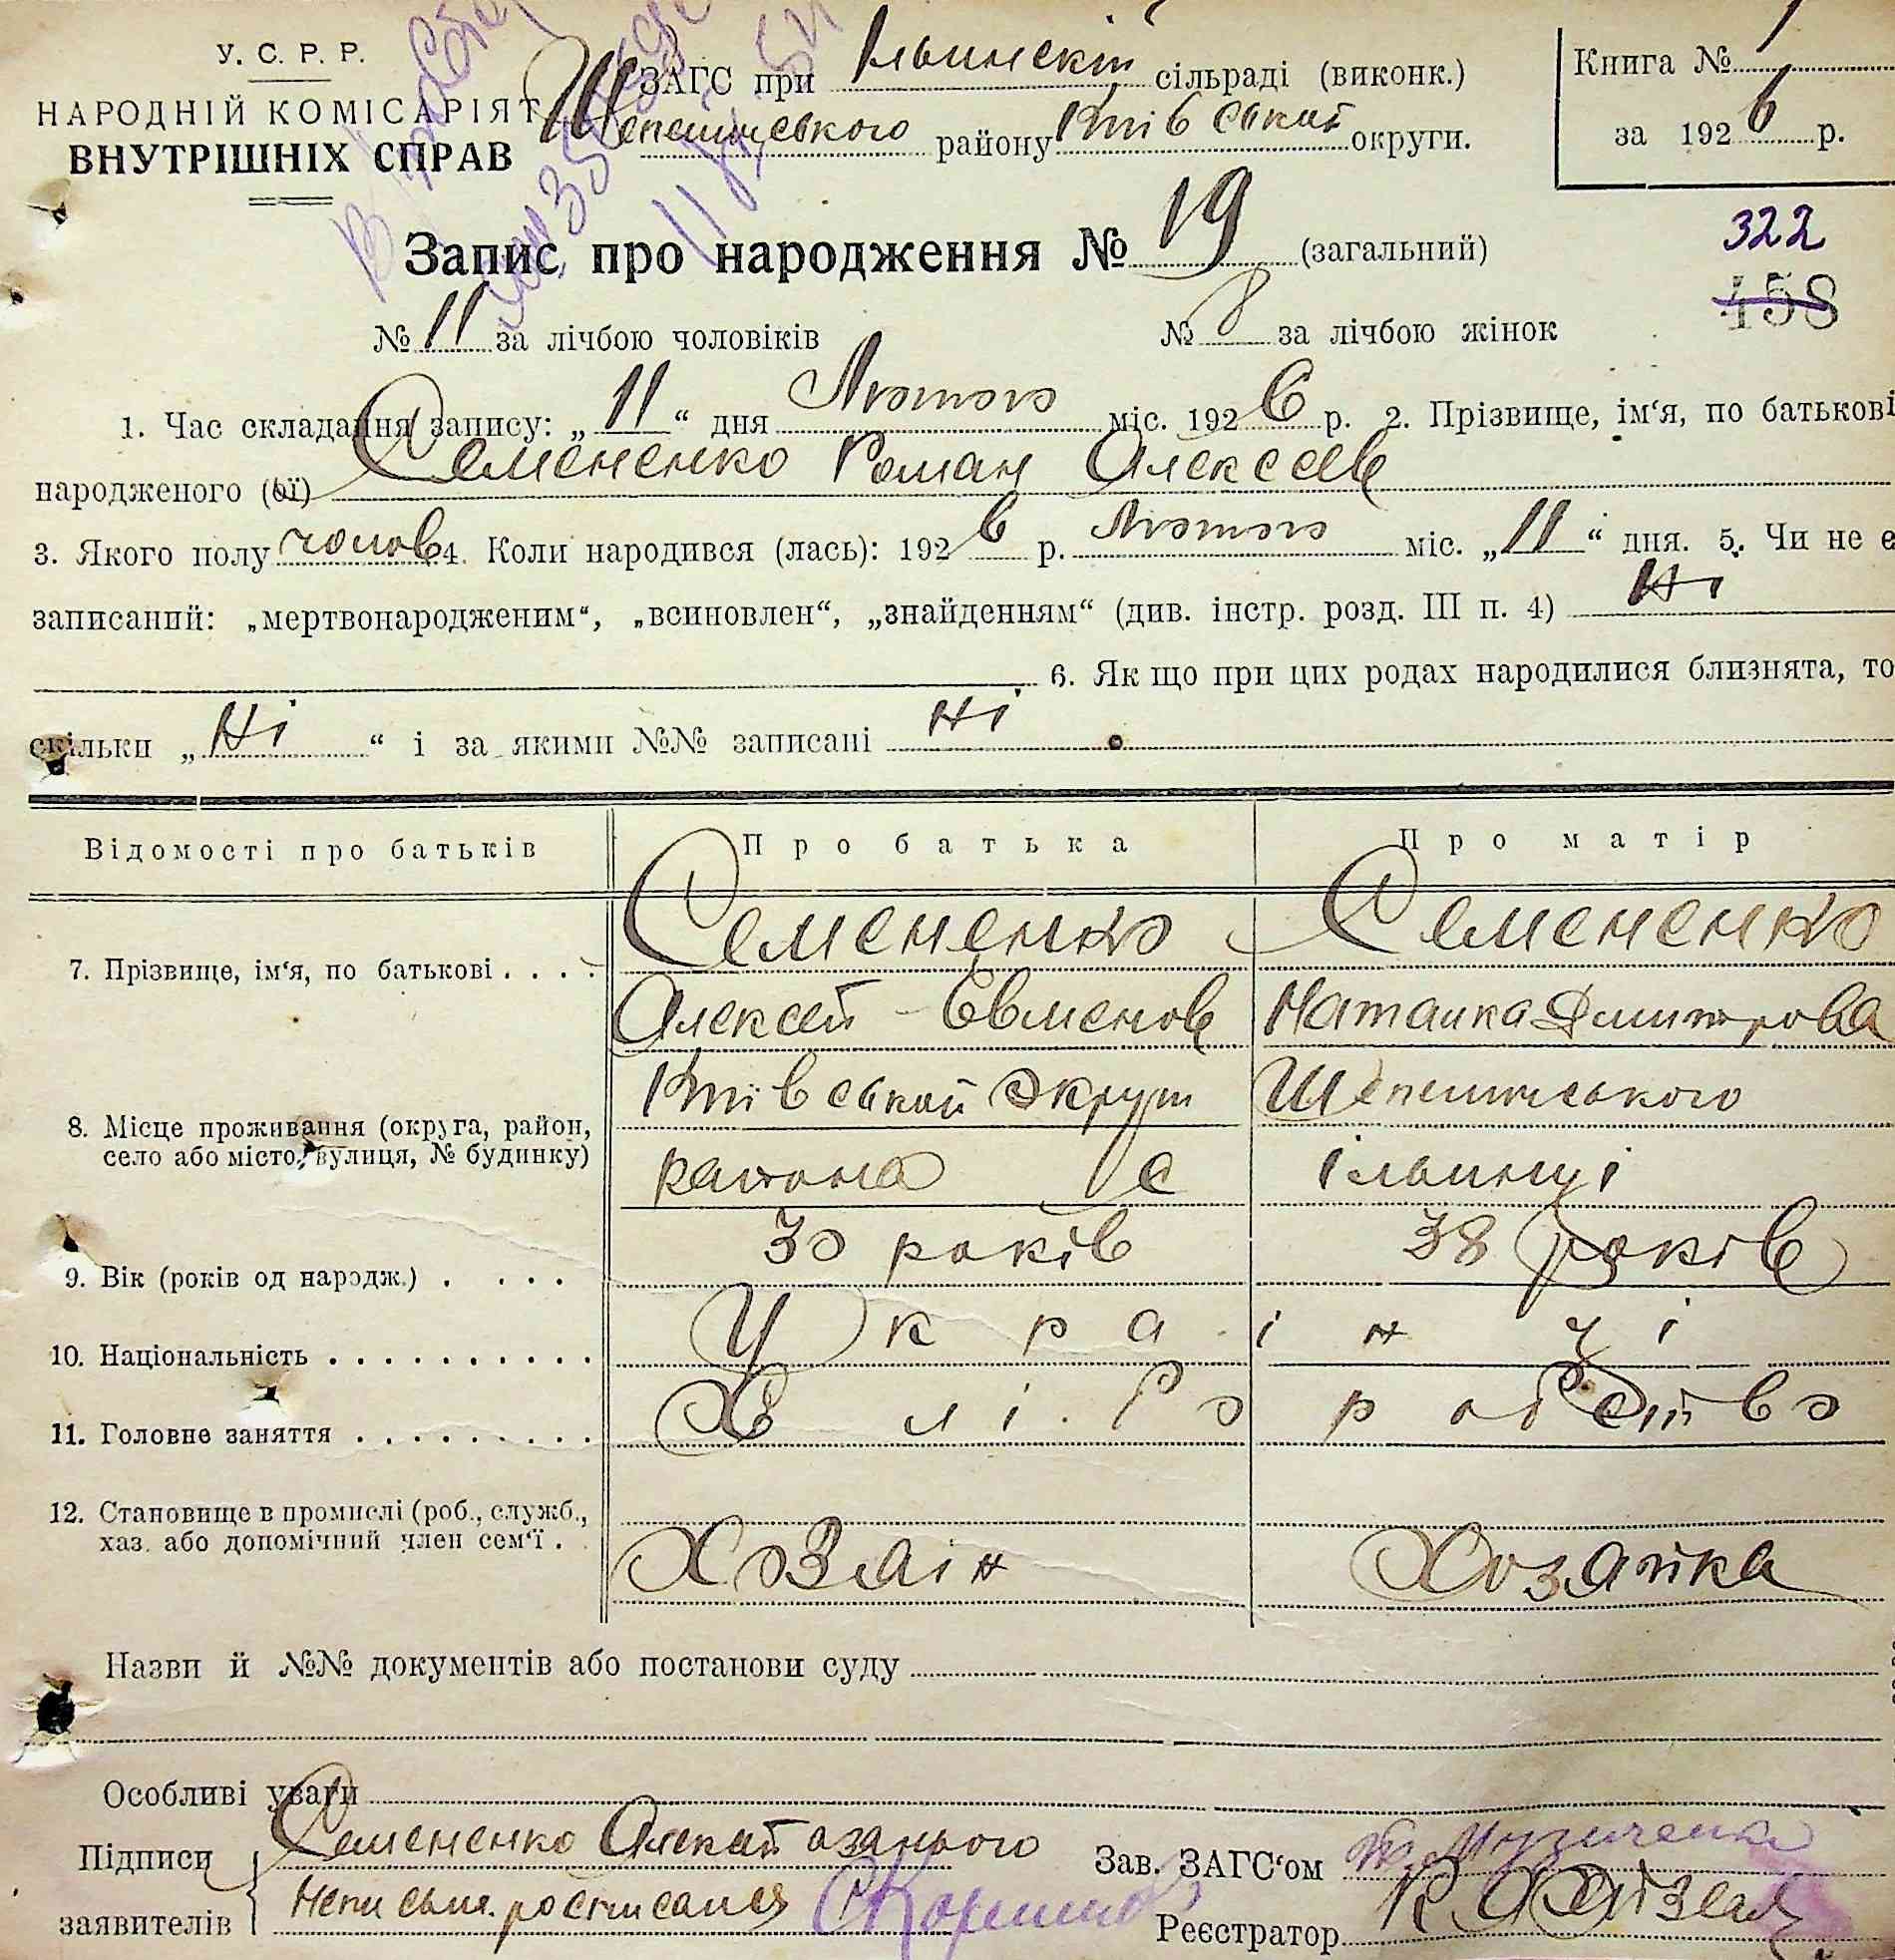 У. С. Р. Р.
НАРОДНІЙ КОМІСАРІЯТ
ВНУТРІШНІХ СПРАВ
ЗАГС при сільраді (виконк.)
району Київськой округи.
Книга № 1
за 1926 р.
Запис про народження № 19 (загальний)
322
458
№ 11 за лічбою чоловіків № 8 за лічбою жінок
1. Час складання запису: „ 11 “ дня Лютого міс. 1926 р. 2. Прізвище, ім'я, по батькові
народженого (ої) Семененко Роман Алексеев
3. Якого полу чолов 4. Коли народився (лась): 1926 р. Лютого міс. „ 11 “ дня. 5. Чи не є
записаний: „мертвонародженим“, „всиновлен“, „знайденням“ (див. інстр. розд. III п. 4) Ні
6. Як що при цих родах народилися близнята, то
скільки „ Ні “ і за якими №№ записані Ні
Відомості про батьків Про батька Про матір
7. Прізвище, ім'я, по батькові . . . . Семененко Семененко
Алексей Евменов Наталка Дмитрова
8. Місце проживання (округа, район, Київськой Округи
село або місто, вулиця, № будинку) района с Ільинці
9. Вік (років од народж.) . . . . 30 років 38 років
10. Національність . . . . . . . . . . Українці
11. Головне заняття . . . . . . . . . Хліборобство
12. Становище в промислі (роб., служб.,
хаз. або допомічний член сем'ї . Хозяін Хозяйка
Назви й №№ документів або постанови суду
Особливі уваги
Підписи Семененко Алексей Зав. ЗАГС'ом
заявителів Реєстратор